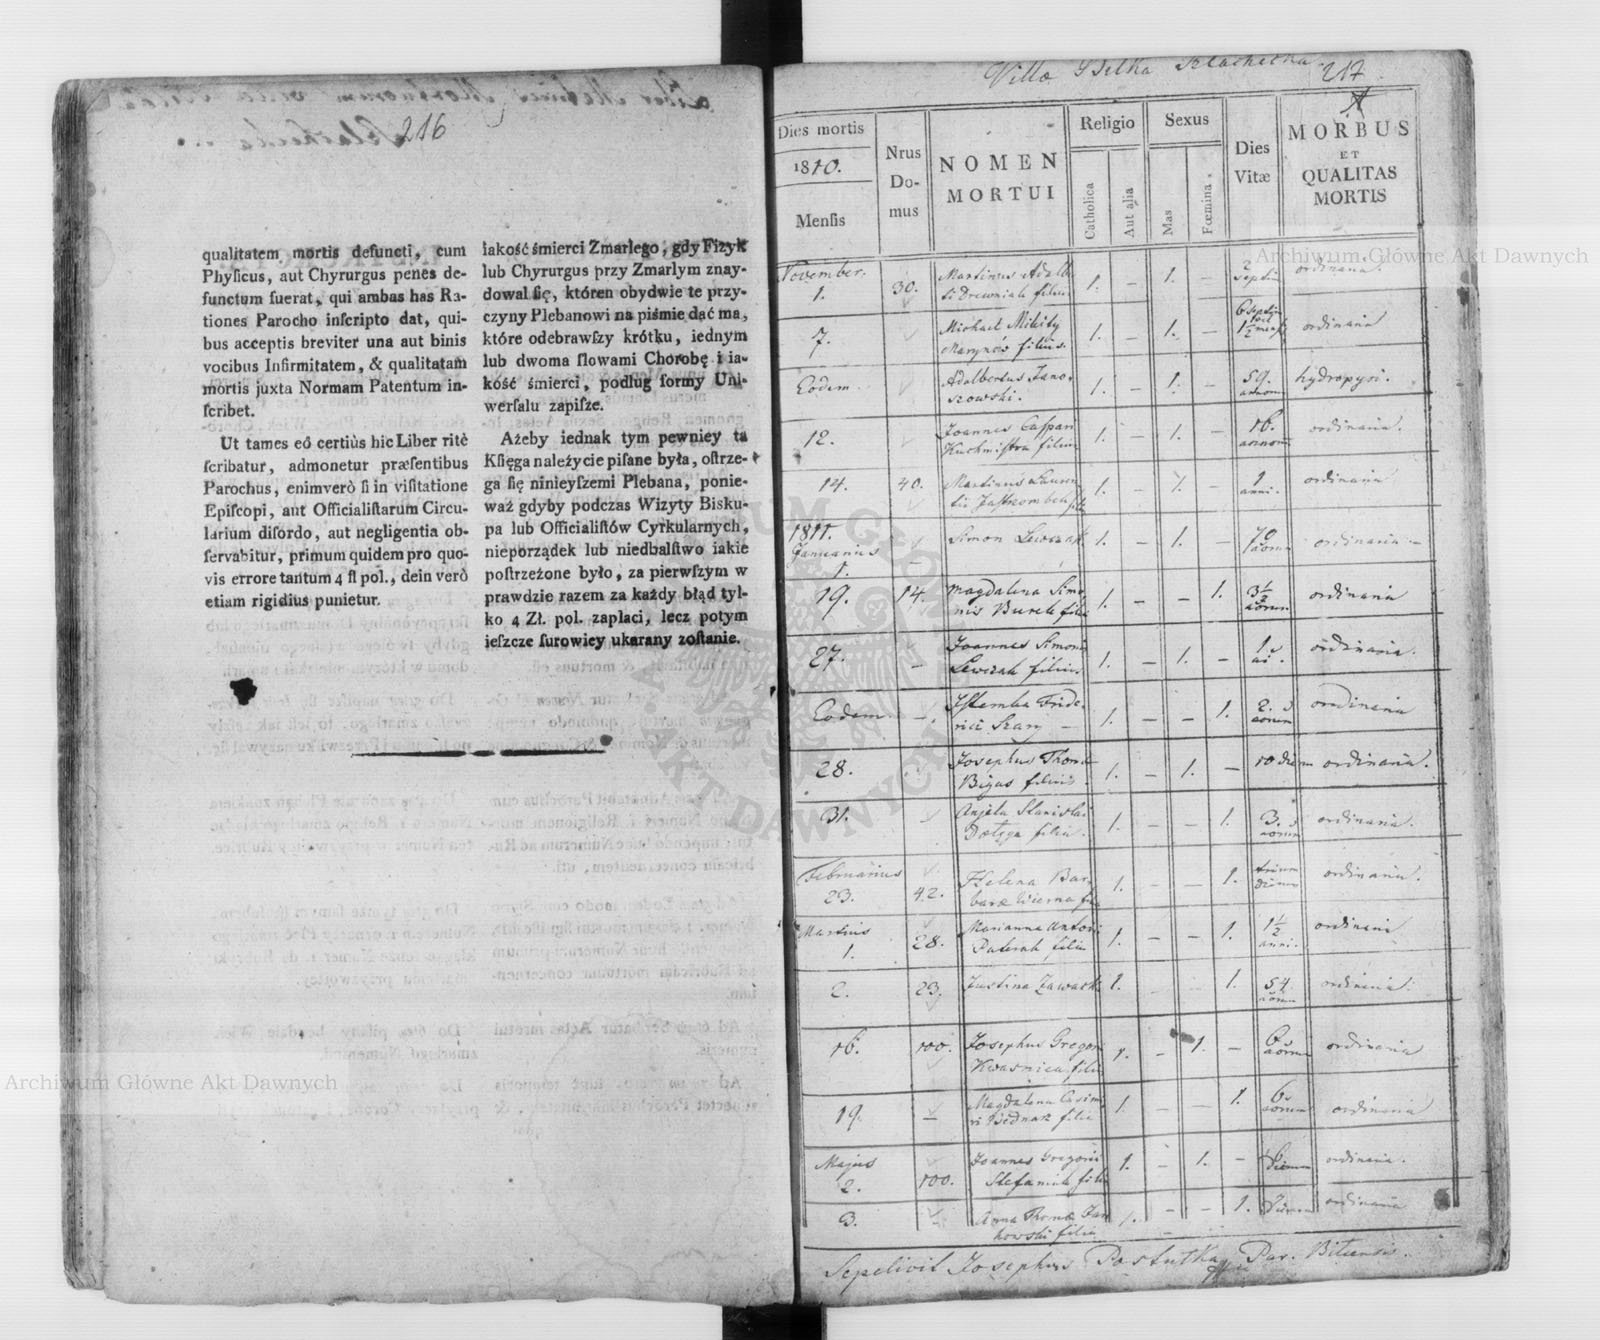 216
qualitatem mortis defuncti, cum
Phyſicus, aut Chyrurgus penes de-
functum fuerat, qui ambas has Ra-
tiones Parocho inſcripto dat, qui-
bus acceptis breviter una aut binis
vocibus Infirmitatem, & qualitatam
mortis juxta Normam Patentum in-
ſcribet.
Ut tames eó certiùs hic Liber ritè
ſcribatur, admonetur præſentibus
Parochus, enimverò ſi in viſitatione
Epiſcopi, aut Officialiſtarum Circu-
larium diſordo, aut negligentia ob-
ſervabitur, primum quidem pro quo-
vis errore tantum 4 fl pol., dein verò
etiam rigidius punietur.
iakość śmierci Zmarlego, gdy Fizyk
lub Chyrurgus przy Zmarlym znay-
dowal ſię, któren obydwie te przy-
czyny Plebanowi na piśmie dać ma,
które odebrawſzy krótku, iednym
lub dwoma ſlowami Chorobę i ia-
kość śmierci, podlug formy Uni-
werſalu zapiſze.
Ażeby iednak tym pewniey ta
Kſięga należycie piſane była, oſtrze-
ga ſię ninieyſzemi Plebana, ponie-
waż gdyby podczas Wizyty Bisku-
pa lub Officialiſtów Cyrkularnych,
nieporządek lub niedbalſtwo iakie
poſtrzeżone bylo, za pierwſzym w
prawdzie razem za każdy błąd tyl-
ko 4 Zł. pol. zaplaci, lecz potym
ieſzcze ſurowiey ukarany zoſtanie.
Villa Bilka Szlachecka. 217
Dies mortis 1810. Menſis
Nrus Do-mus
NOMEN MORTUI
Religio Catholica Aut alia
Sexus Mas Fœmina
Dies Vitæ
MORBUS ET QUALITAS MORTIS
November 1. 30. Martinus Adalb ti Drewniak filius 1. – 1. – 2 septim ordinaria.
7. Michael Mikity filius 1. – 1. – ordinaria
Eodem Adalbertus Jano-szowski. 1. – 1. – 59. annorum hydropysi.
12. Joannes Caspari Kuchmistra filius 1. – 1. – 16. annorum ordinaria.
14. 40. Martinus Lauren-tii Jastrzombek fili 1. – 1. – 1 anni. ordinaria
1811. Januarius 1. Simon Lewczak 1. – 1. – 70 aorum ordinaria –
19. 14. Magdalena Simo-nis Burek filia 1. – – 1. 3½ aorum ordinaria
27. – Joannes Simonis Lewczak filius. 1. – 1. – 1. ordinaria.
Eodem – Fride-rici Szary – 1. – – 1. 2. aorum ordinaria
28. Josephus Thomæ Bigus filius 1. – 1. – 10 dierum ordinaria.
31. Anjela Stanislai filia. 1. – – 1. 3. aorum ordinaria.
Februarius 23. 42. Helena Bar-baræ Wierna fili 1. – – 1. trium dierum ordinaria.
Martius 1. 28. Marianna Antoni Paternk filia 1. – – 1. 1½ anni. ordinaria
2. 23. Justina Zawack 1. – – 1. 54. aorum ordinaria.
16. 100. Josephus Gregori Kwasnica filiu 1. – 1. – 6 aorum ordinaria
19. – Magdalena Casimi-ri Bednaz filia 1. – – 1. 6 aorum ordinaria
Majus 2. 100. Joannes Gregorii Stefaniuk filiu 1. – 1. – dierum ordinaria.
3. – Anna Thomæ Jan kowski filia 1. – – 1. dierum ordinaria
Sepelivit Josephus Postutka Par. Bilcensis.
Archiwum Główne Akt Dawnych
Archiwum Główne Akt Dawnych